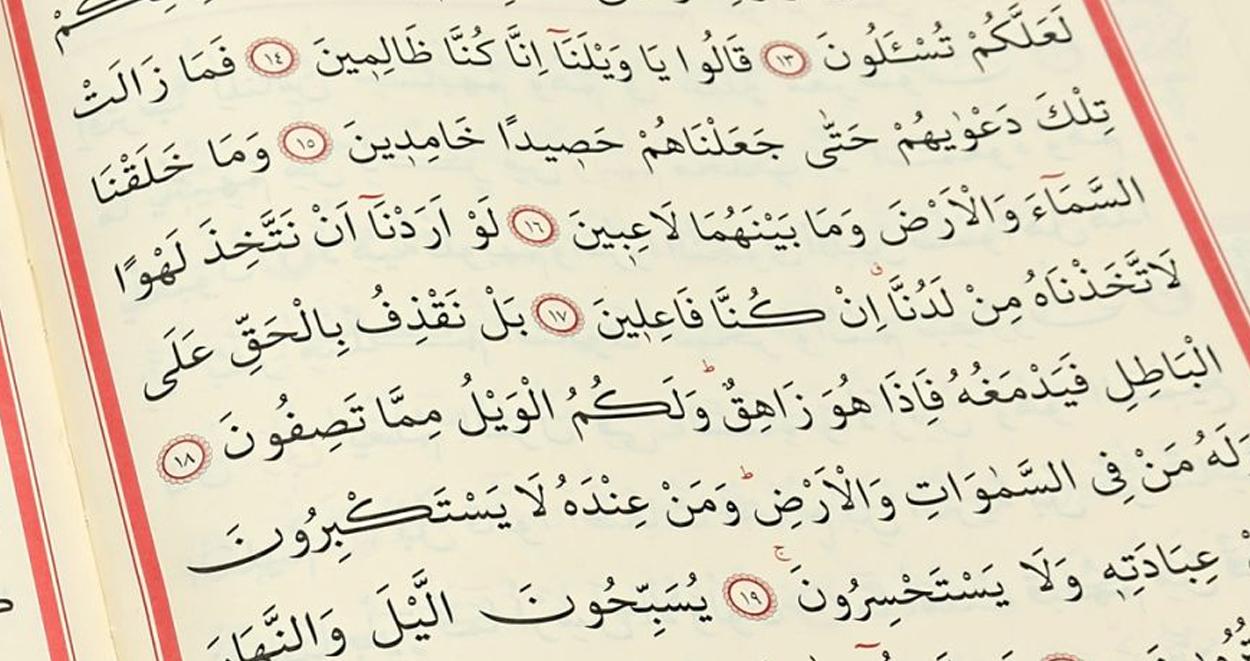 لَعَلَّكُمْ تُسْـَٔلُونَ ﴿١٣﴾ قَالُوا يَا وَيْلَنَٓا اِنَّا كُنَّا ظَالِم۪ينَ ﴿١٤﴾ فَمَا زَالَتْ
تِلْكَ دَعْوٰيهُمْ حَتّٰى جَعَلْنَاهُمْ حَص۪يدًا خَامِد۪ينَ ﴿١٥﴾ وَمَا خَلَقْنَا
السَّمَٓاءَ وَالْاَرْضَ وَمَا بَيْنَهُمَا لَاعِب۪ينَ ﴿١٦﴾ لَوْ اَرَدْنَٓا اَنْ نَتَّخِذَ لَهْوًا
لَاتَّخَذْنَاهُ مِنْ لَدُنَّاۗ اِنْ كُنَّا فَاعِل۪ينَ ﴿١٧﴾ بَلْ نَقْذِفُ بِالْحَقِّ عَلَى
الْبَاطِلِ فَيَدْمَغُهُ فَاِذَا هُوَ زَاهِقٌۜ وَلَكُمُ الْوَيْلُ مِمَّا تَصِفُونَ ﴿١٨﴾
وَلَهُ مَنْ فِى السَّمٰوَاتِ وَالْاَرْضِۜ وَمَنْ عِنْدَهُ لَا يَسْتَكْبِرُونَ
عِبَادَتِه۪ وَلَا يَسْتَحْسِرُونَۚ ﴿١٩﴾ يُسَبِّحُونَ الَّيْلَ وَالنَّهَارَ